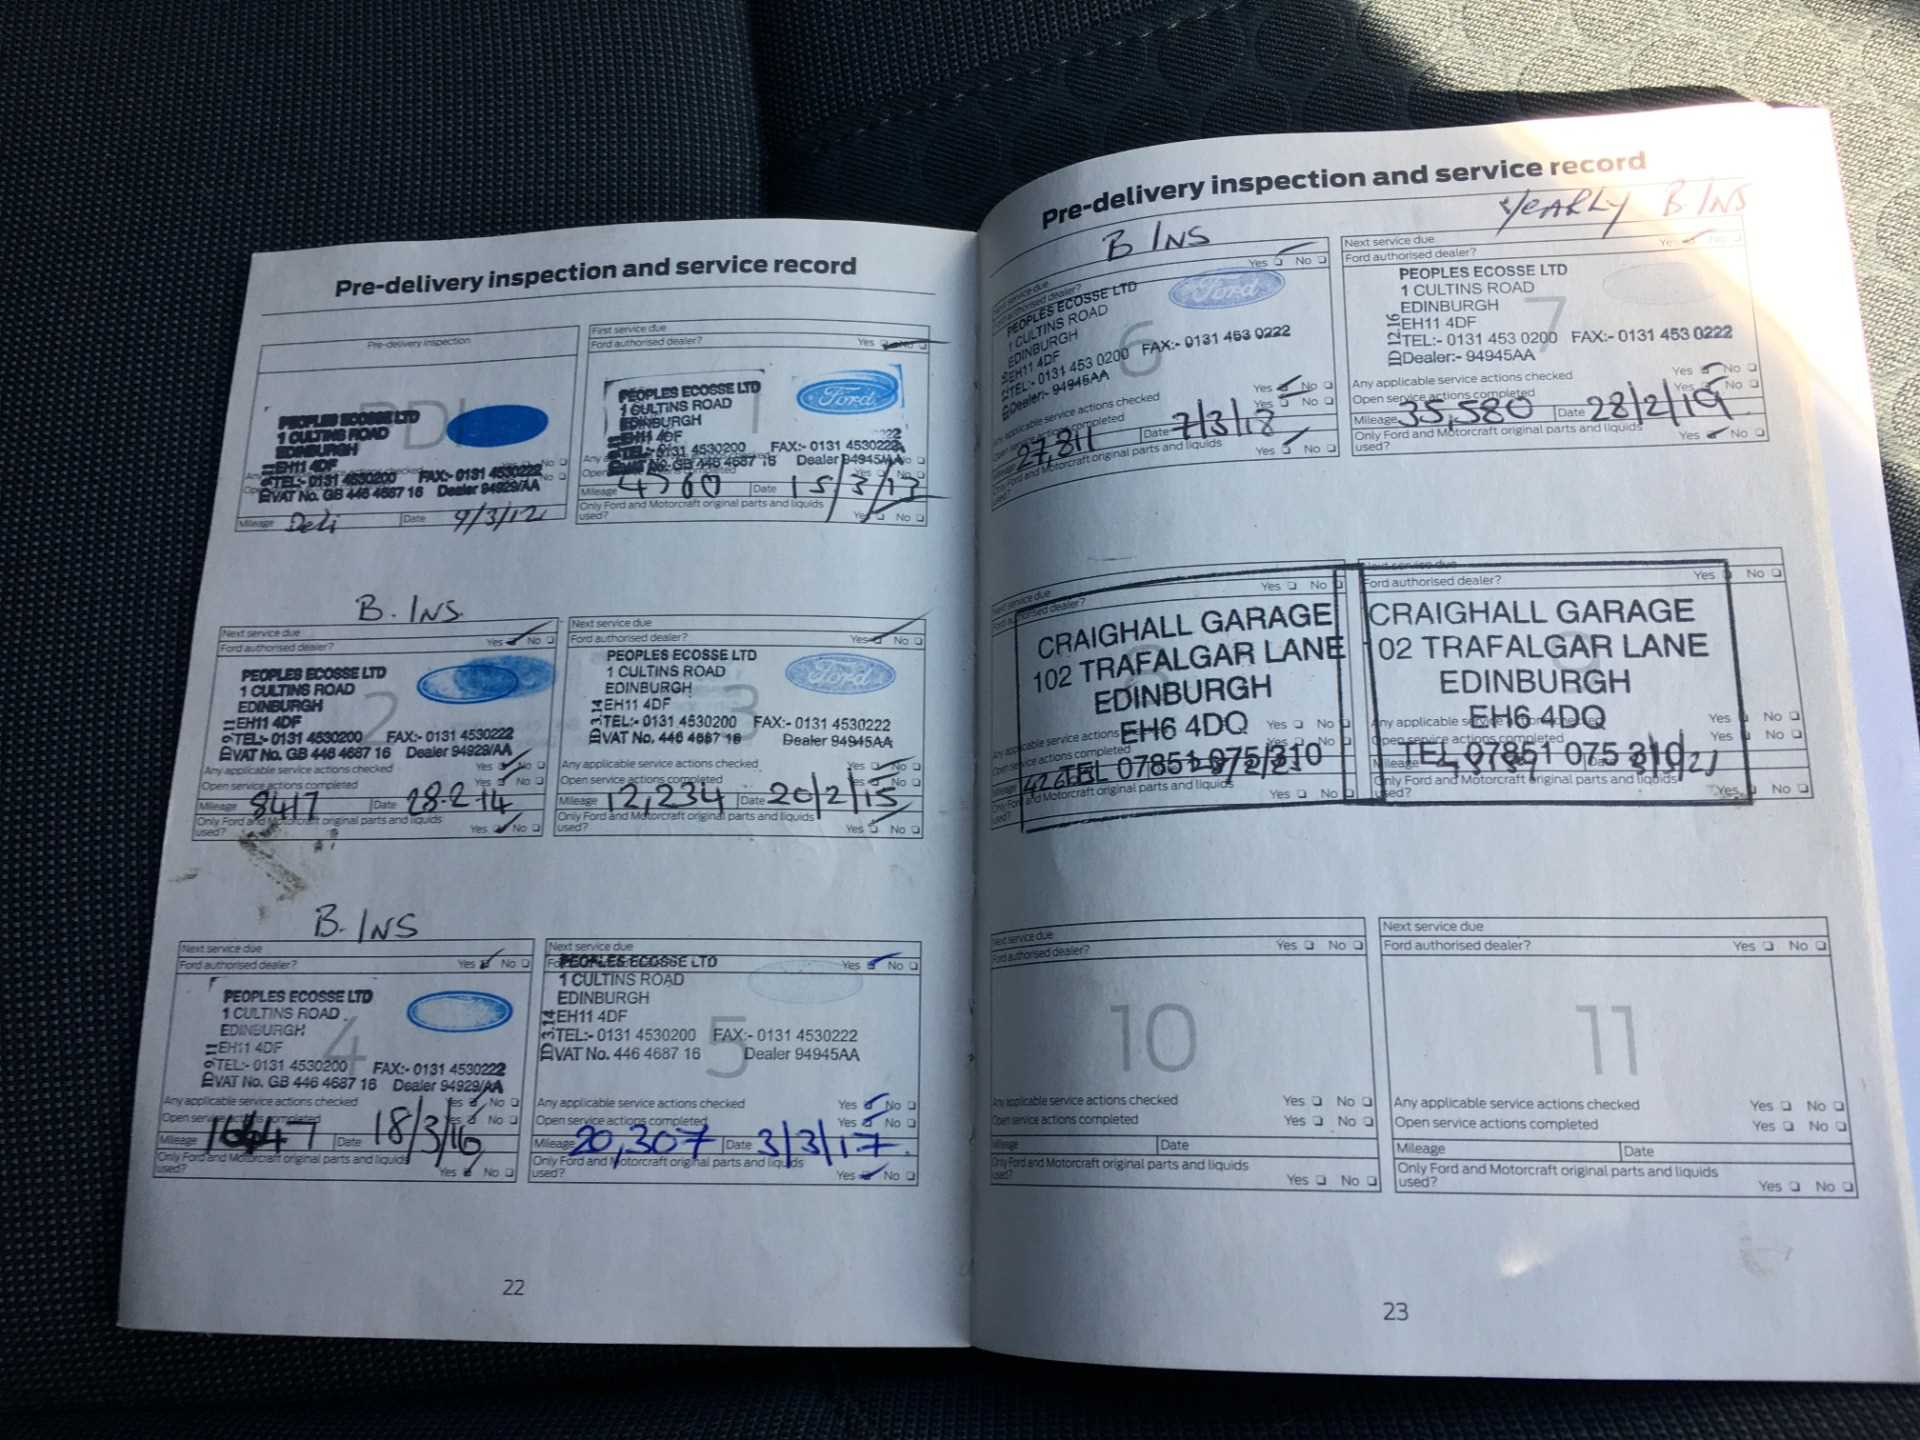 Pre-delivery inspection and service record
Pre-delivery inspection
PEOPLES ECOSSE LTD
1 CULTINS ROAD
EDINBURGH
EH11 4DF
TEL:- 0131 4530200 FAX:- 0131 4530222
VAT No. GB 446 4687 16 Dealer 94929/AA
Mileage Deli Date 9/3/12
First service due
Ford authorised dealer? Yes No
PEOPLES ECOSSE LTD
1 CULTINS ROAD
EDINBURGH
EH11 4DF
TEL:- 0131 4530200 FAX:- 0131 4530222
VAT No. GB 446 4687 16 Dealer 94945AA
Ford
Mileage Date 15/3/13
Only Ford and Motorcraft original parts and liquids
used? Yes No
B. INS
Next service due
Ford authorised dealer? Yes No
PEOPLES ECOSSE LTD
1 CULTINS ROAD
EDINBURGH
EH11 4DF
TEL:- 0131 4530200 FAX:- 0131 4530222
VAT No. GB 446 4687 16 Dealer 94929/AA
2
Any applicable service actions checked Yes No
Open service actions completed Yes No
Mileage 8417 Date 28.2.14
Only Ford and Motorcraft original parts and liquids
used? Yes No
Next service due
Ford authorised dealer? Yes No
PEOPLES ECOSSE LTD
1 CULTINS ROAD
EDINBURGH
EH11 4DF
TEL:- 0131 4530200 FAX:- 0131 4530222
VAT No. 446 4687 16 Dealer 94945AA
Ford
3
Any applicable service actions checked Yes No
Open service actions completed Yes No
Mileage 12,234 Date 20/2/15
Only Ford and Motorcraft original parts and liquids
used? Yes No
B. INS
Next service due
Ford authorised dealer? Yes No
PEOPLES ECOSSE LTD
1 CULTINS ROAD
EDINBURGH
EH11 4DF
TEL:- 0131 4530200 FAX:- 0131 4530222
VAT No. GB 446 4687 16 Dealer 94929/AA
4
Any applicable service actions checked Yes No
Open service actions completed Yes No
Mileage Date 18/3/16
Only Ford and Motorcraft original parts and liquids
used? Yes No
Next service due
Yes No
PEOPLES ECOSSE LTD
1 CULTINS ROAD
EDINBURGH
EH11 4DF
TEL:- 0131 4530200 FAX:- 0131 4530222
VAT No. 446 4687 16 Dealer 94945AA
ID 3.14
5
Any applicable service actions checked Yes No
Open service actions completed Yes No
Mileage 20,307 Date 3/3/17
Only Ford and Motorcraft original parts and liquids
used? Yes No
22
Pre-delivery inspection and service record
B INS
Yes No
PEOPLES ECOSSE LTD
1 CULTINS ROAD
EDINBURGH
EH11 4DF
TEL:- 0131 453 0200 FAX:- 0131 453 0222
Dealer:- 94945AA
Ford
6
Any applicable service actions checked Yes No
Open service actions completed Yes No
Mileage 27,811 Date 7/3/18
Only Ford and Motorcraft original parts and liquids
used? Yes No
YEARLY B. INS
Next service due
Ford authorised dealer? Yes No
PEOPLES ECOSSE LTD
1 CULTINS ROAD
EDINBURGH
EH11 4DF
TEL:- 0131 453 0200 FAX:- 0131 453 0222
Dealer:- 94945AA
ID 12.16
7
Any applicable service actions checked Yes No
Open service actions completed Yes No
Mileage 35,580 Date 28/2/19
Only Ford and Motorcraft original parts and liquids
used? Yes No
Next service due
Ford authorised dealer? Yes No
CRAIGHALL GARAGE
102 TRAFALGAR LANE
EDINBURGH
EH6 4DQ
TEL 07851 075 310
Any applicable service actions Yes No
Open service actions completed Yes No
Only Ford and Motorcraft original parts and liquids
Yes No
Next service due
Ford authorised dealer? Yes No
CRAIGHALL GARAGE
102 TRAFALGAR LANE
EDINBURGH
EH6 4DQ
TEL 07851 075 310
9
Any applicable service actions checked Yes No
Open service actions completed Yes No
Mileage
Only Ford and Motorcraft original parts and liquids
used? Yes No
Next service due
Ford authorised dealer? Yes No
10
Any applicable service actions checked Yes No
Open service actions completed Yes No
Mileage Date
Only Ford and Motorcraft original parts and liquids
used? Yes No
Next service due
Ford authorised dealer? Yes No
11
Any applicable service actions checked Yes No
Open service actions completed Yes No
Mileage Date
Only Ford and Motorcraft original parts and liquids
used? Yes No
23